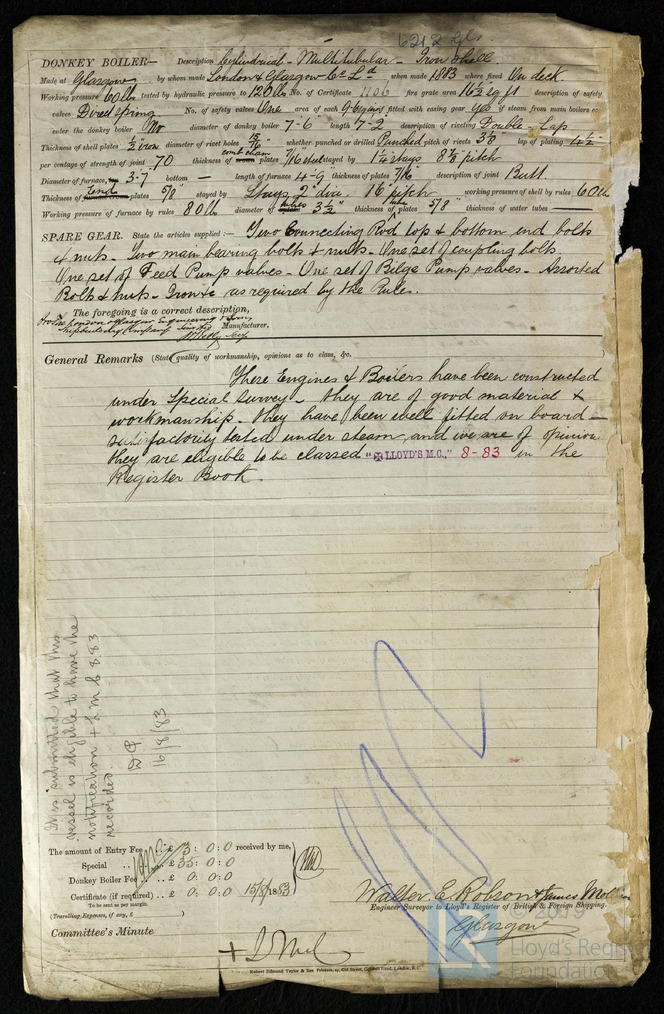 6212 Gls.
DONKEY BOILER— Description Cylindrical - Multitubular - Iron Shell.
Made at Glasgow by whom made London & Glasgow Co Ld when made 1883 where fixed On deck.
Working pressure 60 lb tested by hydraulic pressure to 120 lb No. of Certificate 1106 fire grate area 16½ sq ft description of safety
valves Direct Spring No. of safety valves One area of each fitted with easing gear yes if steam from main boilers can
enter the donkey boiler No diameter of donkey boiler 7'-6" length 7'-2" description of riveting Double - Lap
Thickness of shell plates ½ iron diameter of rivet holes 15/16 whether punched or drilled Punched pitch of rivets 3⅜ lap of plating 4½
per centage of strength of joint 70 thickness of comb. cham plates 7/16 steel stayed by 1¼ stays 8½ pitch
Diameter of furnace, 3-7" bottom — length of furnace 4-9 thickness of plates 7/16 description of joint Butt.
Thickness of end plates 5/8" stayed by Stays 2" dia. 16" pitch working pressure of shell by rules 60 lb
Working pressure of furnace by rules 80 lb diameter of tubes 3½" thickness of plates 5/8" thickness of water tubes
SPARE GEAR. State the articles supplied:— Two Connecting Rod top & bottom end bolts
& nuts. Two main bearing bolts & nuts. One set of coupling bolts.
One set of Feed Pump valves - One set of Bilge Pump valves - Assorted
Bolts & nuts - Iron &c as required by the Rules.
The foregoing is a correct description,
For The London & Glasgow Engineering & Iron
Shipbuilding Company Limited Manufacturer.
General Remarks (State quality of workmanship, opinions as to class, &c.
These Engines & Boilers have been constructed
under Special Survey - they are of good material &
workmanship - they have been well fitted on board -
satisfactorily tested under steam, and we are of opinion
they are eligible to be classed "✠ LLOYD'S M.C.," 8-83 in the
Register Book.
It is submitted that this
vessel is eligible to have the
notification + L M C 8.83
recorded.
16/8/83
The amount of Entry Fee .. £ 3 : 0 : 0 received by me,
Special .. £ 35 : 0 : 0
Donkey Boiler Fee .. £ 0 : 0 : 0
Certificate (if required) .. £ 0 : 0 : 0 15/8/1883
To be sent as per margin.
(Travelling Expenses, if any, £ )
Walter E. Robson & James
Engineer Surveyor to Lloyd's Register of British & Foreign Shipping.
Glasgow
Committee's Minute
Robert Edmund Taylor & Son Printers, 19, Old Street, Goswell Road, London, E.C.
© 2019
Lloyd's Register
Foundation